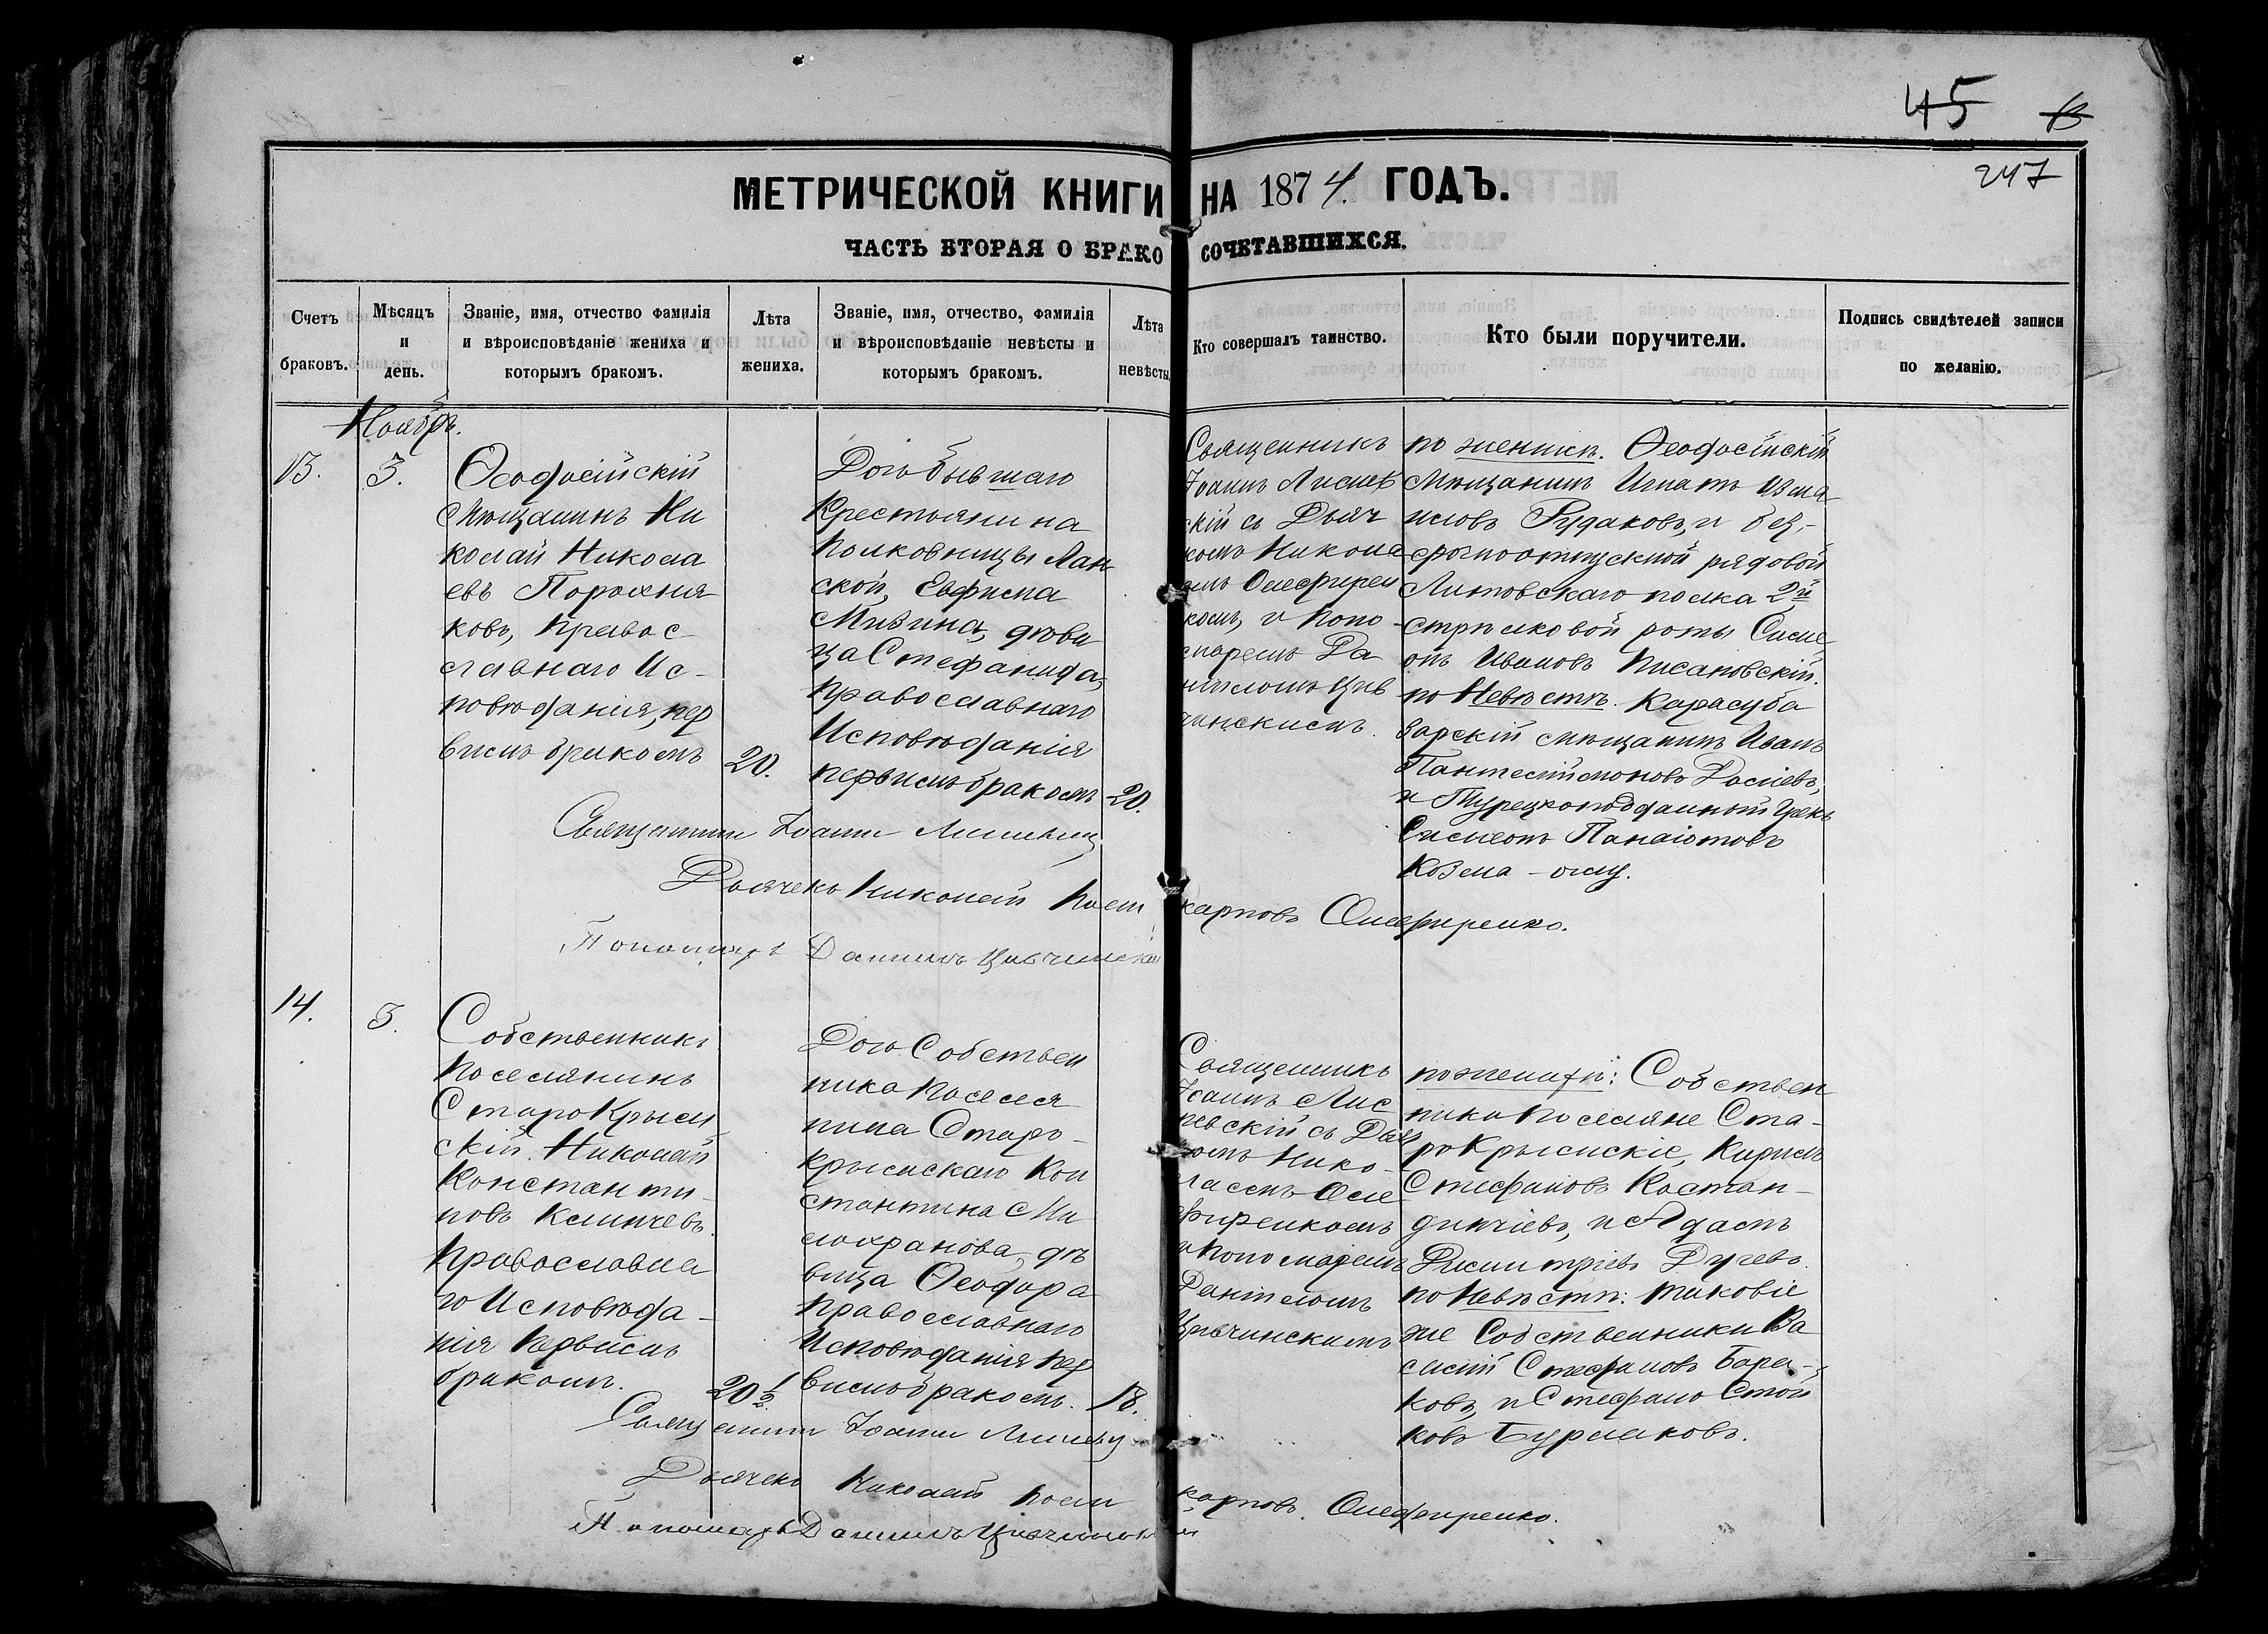 45
247
МЕТРИЧЕСКОЙ КНИГИ НА 1874. ГОДЪ.
ЧАСТЬ ВТОРАЯ О БРАКОСОЧЕТАВШИХСЯ.
Счетъ браковъ.
Мѣсяцъ и день.
Званіе, имя, отчество фамилія
и вѣроисповѣданіе жениха и
которымъ бракомъ.
Лѣта
жениха.
Званіе, имя, отчество, фамилія
и вѣроисповѣданіе невѣсты и
которымъ бракомъ.
Лѣта
невѣсты.
Кто совершалъ таинство.
Кто были поручители.
Подпись свидѣтелей записи
по желанію.
Ноябрь.
13.
3.
Ѳеодосійскій
Мѣщанинъ Ни
колай Никола
евъ Порохня
ковъ, Правос-
лавнаго Ис-
повѣданія, пер
вымъ бракомъ
20.
Дочь бывшаго
Крестьянина
Полковницы Лан
ской, Евфима
Мизина, дѣви
ца Стефанида,
Православнаго
Исповѣданія
первымъ бракомъ
20.
Священникъ
Іоаннъ
скій съ Дьяч
комъ Никола
емъ Олефирен
комъ, и Поно-
маремъ Да
ниломъ Цив
чинскимъ.
по женихѣ. Ѳеодосійскій
Мѣщанинъ Игнатъ Изма
иловъ Рудаковъ, и без-
срочноотпускной рядовой
Литовскаго полка 2й
стрѣлковой роты Симе
онъ Ивановъ Писановскій.
по Невѣстѣ. Карасуба
зарскій мѣщанинъ Иванъ
Пантелеймоновъ
и Турецкоподданный Грекъ
Симеонъ Панаіотовъ
Козма-оглу.
Священникъ Іоаннъ
Дьячекъ Николай Поликарповъ Олефиренко.
Пономарь Даниилъ Цивчинскій
14.
3.
Собственникъ
Поселянинъ
СтароКрым
скій Николай
Константи-
новъ Климчевъ
Православна
го Исповѣда-
нія Первымъ
бракомъ.
20½
Дочь Собствен
ника Поселя
нина Старо-
крымскаго Кон
стантина Ми
лохранова, дѣ
вица Ѳеодора
Православнаго
Исповѣданія пер
вымъ бракомъ.
18.
Священникъ
Іоаннъ
скій съ Дьяч
комъ Нико-
лаемъ Оле
фиренкомъ
и Пономаремъ
Даніиломъ
Цивчинскимъ
по женихѣ: Собствен
ники Поселяне Ста-
роКрымскіе, Кирилъ
Стефановъ Костан-
динчіевъ, и Адамъ
Димитріевъ Дучевъ.
по Невѣстѣ: таковіе
же Собственники Ва
силій Стефановъ Бара-
ковъ, и Стефанъ Стой
ковъ Бурлаковъ.
Священникъ Іоаннъ
Дьячекъ Николай Поликарповъ Олефиренко.
Пономарь Даниилъ Цивчинскій